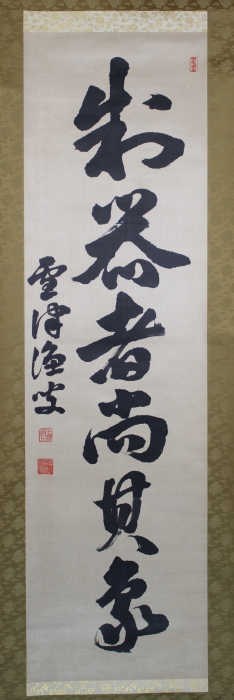 制器者尚其象
雪津漁叟